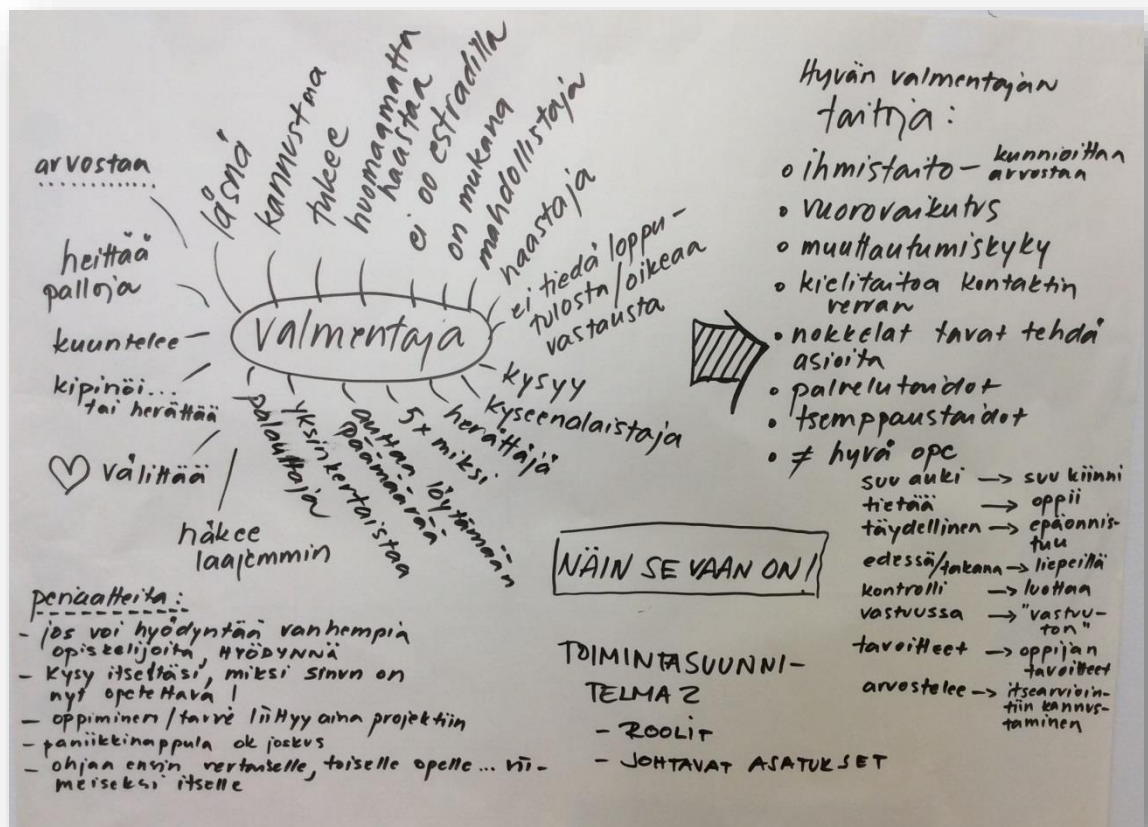 arvostaa
läsnä
kannustaa
tukee
huomaamatta
haastaa
ei oo estradilla
on mukana
mahdollistaja
haastaja
ei tiedä loppu-
tulosta/oikeaa
vastausta
heittää
palloja
kuuntelee
kipinöi...
tai herättää
♡ välittää
näkee
laajemmin
valmentaja
kysyy
kyseenalaistaja
herättäjä
5x miksi
auttaa löytämään
päämäärää
yksinkertaistaa
palauttaja
Hyvän valmentajan
taitoja:
• ihmistaito – kunnioittaa
arvostaa
• vuorovaikutus
• muuttautumiskyky
• kielitaitoa kontaktin
verran
• nokkelat tavat tehdä
asioita
• palvelutaidot
• tsemppaustaidot
• ≠ hyvä ope
suu auki → suu kiinni
tietää → oppii
täydellinen → epäonnis-
tuu
edessä/takana → liepeillä
kontrolli → luottaa
vastuussa → "vastuu-
ton"
tavoitteet → oppijan
tavoitteet
arvostelee → itsearvioin-
tiin kannus-
taminen
NÄIN SE VAAN ON!
TOIMINTASUUNNI-
TELMA 2
- ROOLIT
- JOHTAVAT ASATUKSET
periaatteita:
- jos voi hyödyntää vanhempia
opiskelijoita, HYÖDYNNÄ
- kysy itseltäsi, miksi sinun on
nyt opetettava!
- oppiminen/tarve liittyy aina projektiin
- paniikkinappula ok joskus
- ohjaa ensin vertaiselle, toiselle opelle... vii-
meiseksi itselle